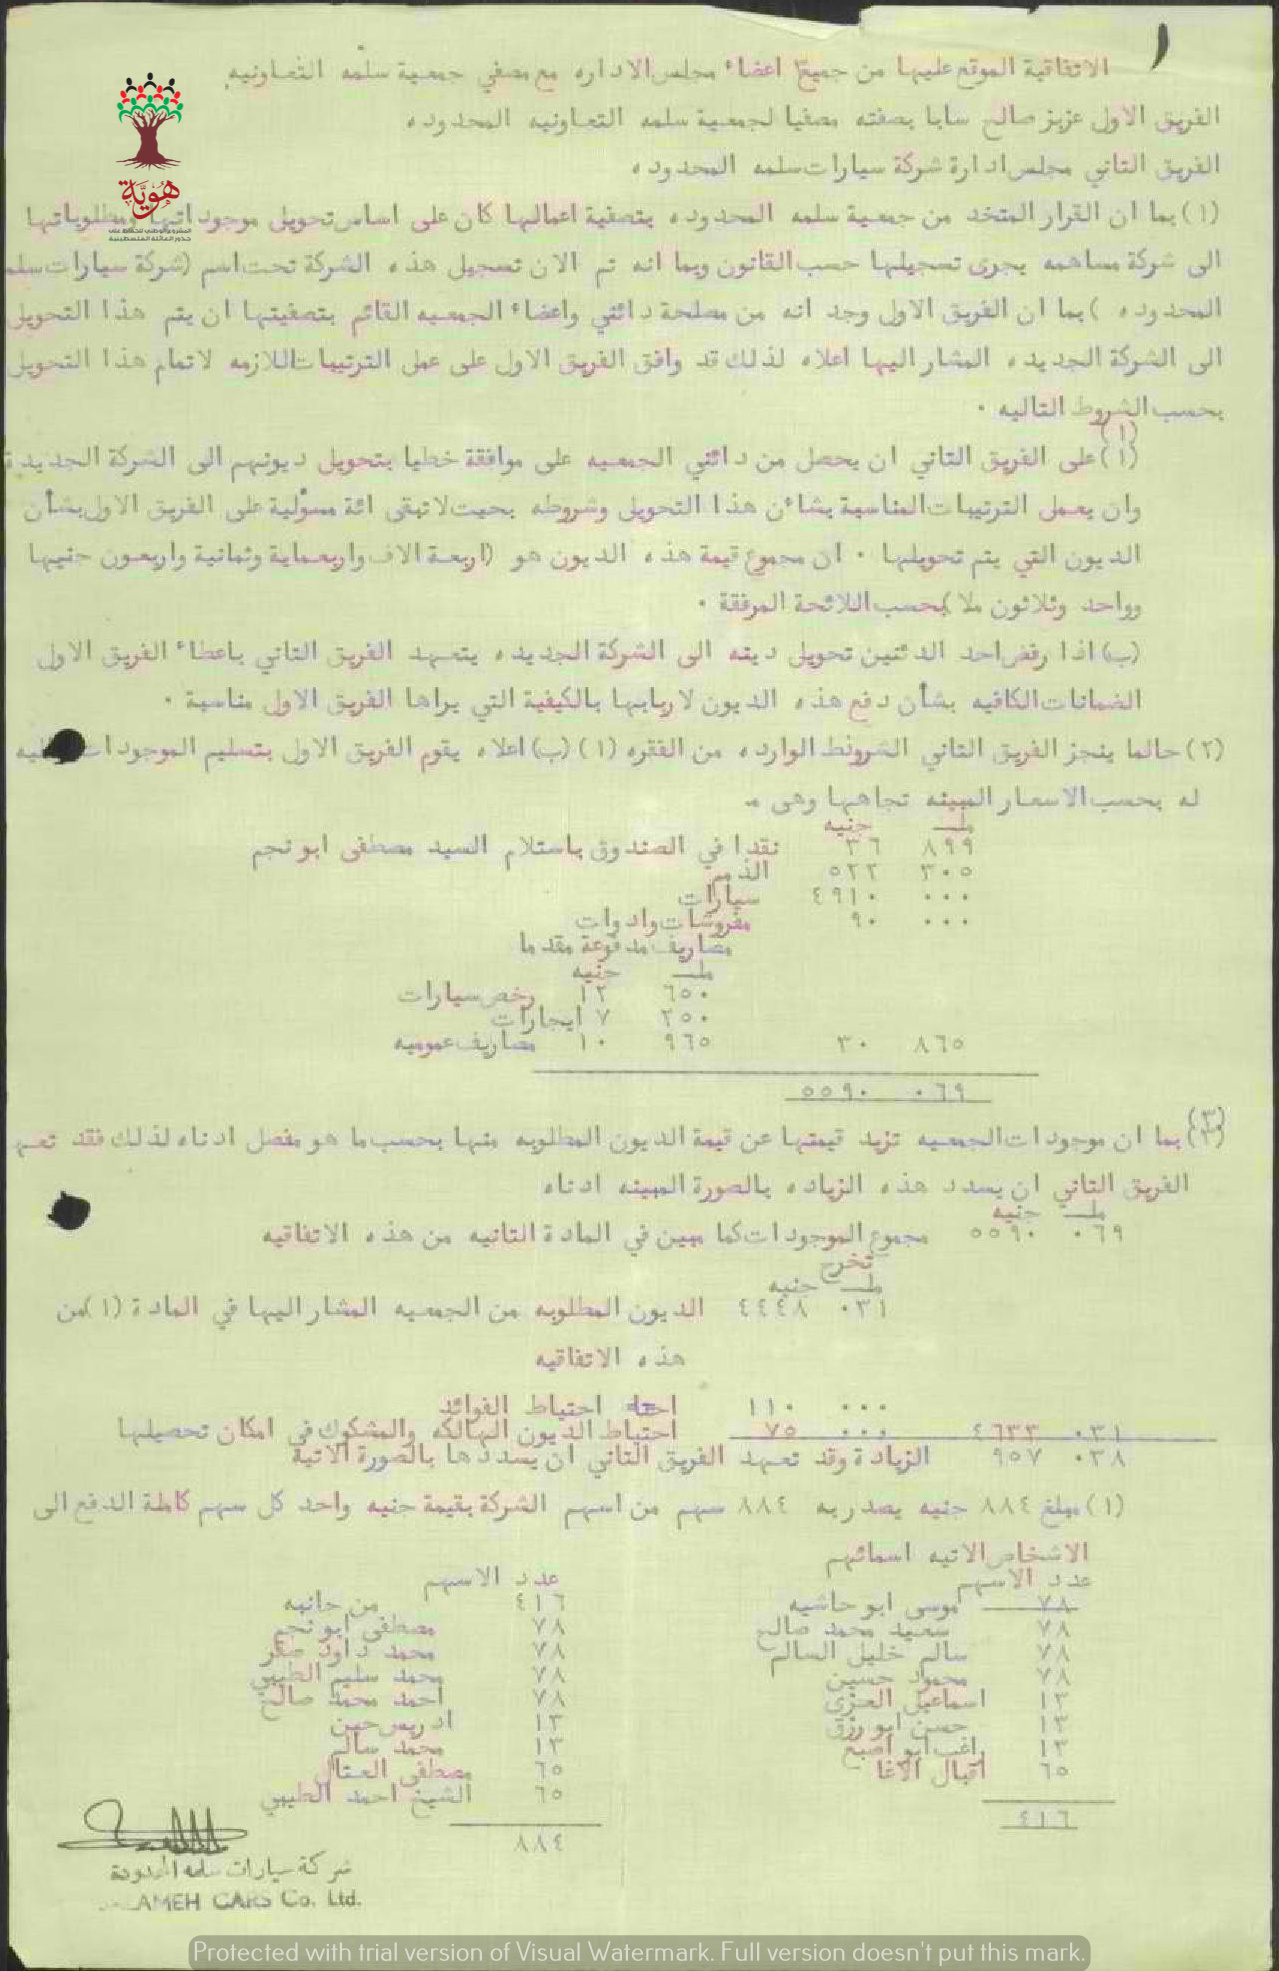 ١
الاتفاقية الموقع عليها من جميع اعضاء مجلس الاداره مع مصفي جمعية سلمه التعاونيه
الفريق الاول عزيز صالح سابا بصفته مصفيا لجمعية سلمه التعاونيه المحدوده
الفريق الثاني مجلس ادارة شركة سيارات سلمه المحدوده
هُوِيَّة
المشروع الوطني للحفاظ على
جذور العائلة الفلسطينية
(١) بما ان القرار المتخد من جمعية سلمه المحدوده بتصفية اعمالها كان على اساس تحويل موجوداتها ومطلوباتها
الى شركة مساهمه يجرى تسجيلها حسب القانون وبما انه تم الان تسجيل هذه الشركة تحت اسم (شركة سيارات سلمه
المحدوده ) بما ان الفريق الاول وجد انه من مصلحة دائني واعضاء الجمعيه القائم بتصفيتها ان يتم هذا التحويل
الى الشركة الجديده المشار اليها اعلاه لذلك قد وافق الفريق الاول على عمل الترتيبات اللازمه لاتمام هذا التحويل
بحسب الشروط التاليه ٠
(١)
(١) على الفريق الثاني ان يحصل من دائني الجمعيه على موافقة خطيا بتحويل ديونهم الى الشركة الجديدة
وان يعمل الترتيبات المناسبة بشائن هذا التحويل وشروطه بحيث لا تبقى ائة مسؤلية على الفريق الاول بشأن
الديون التي يتم تحويلها ٠ ان مجموع قيمة هذه الديون هو (اربعة الاف واربعماية وثمانية واربعون جنيها
وواحد وثلاثون ملا) بحسب اللائحة المرفقة ٠
(ب) اذا رفض احد الدئنين تحويل دينه الى الشركة الجديده يتعهد الفريق الثاني باعطاء الفريق الاول
الضمانات الكافيه بشأن دفع هذه الديون لاربابها بالكيفية التي يراها الفريق الاول مناسبة ٠
(٢) حالما ينجز الفريق الثاني الشرونط الوارده من الفقره (١) (ب) اعلاه يقوم الفريق الاول بتسليم الموجودات
له بحسب الاسعار المبينه تجاهها وهى :ـ
ملـ جنيه
٨٩٩ ٣٦ نقدا في الصندوق باستلام السيد مصطفى ابو نجم
٣٠٥ ٥٢٢ الذمم
٠٠٠ ٤٩١٠ سيارات
٠٠٠ ٩٠ مفروشات وادوات
مصاريف مدفوعة مقدما
ملـ جنيه
٦٥٠ ١٢ رخص سيارات
٢٥٠ ٧ ايجارات
٨٦٥ ٣٠ ٩٦٥ ١٠ مصاريف عموميه
٠٦٩ ٥٥٩٠
(٣) بما ان موجودات الجمعيه تزيد قيمتها عن قيمة الديون المطلوبه منها بحسب ما هو مفصل ادناه لذلك فقد تعهد
الفريق الثاني ان يسدد هذه الزياده بالصورة المبينه ادناه
ملـ جنيه
٠٦٩ ٥٥٩٠ مجموع الموجودات كما مبين في المادة الثانيه من هذه الاتفاقيه
تخرج
ملـ جنيه
٠٣١ ٤٤٤٨ الديون المطلوبه من الجمعيه المشار اليها في المادة (١) من
هذه الاتفاقيه
٠٠٠ ١١٠ احتا احتياط الفوائد
٠٣١ ٤٦٣٣ ٠٠٠ ٧٥ احتياط الديون الهالكه والمشكوك في امكان تحصيلها
٠٣٨ ٩٥٧ الزيادة وقد تعهد الفريق الثاني ان يسددها بالصورة الاتية
(١) مبلغ ٨٨٤ جنيه يصدر به ٨٨٤ سهم من اسهم الشركة بقيمة جنيه واحد كل سهم كاملة الدفع الى
الاشخاص الاتيه اسمائهم
عدد الاسهم
٧٨ موسى ابو حاشيه
٧٨ سعيد محمد صالح
٧٨ سالم خليل السالم
٧٨ محمود حسين
١٣ اسماعيل العزى
١٣ حسن ابو رزق
١٣ راغب ابو اصبع
٦٥ اقبال الاغا
٤١٦
عدد الاسهم
٤١٦ من جانبه
٧٨ مصطفى ابو نجم
٧٨ محمد داود صقر
٧٨ محمد سليم الطيبي
٧٨ احمد محمد صالح
١٣ ادريس حين
١٣ محمد سالم
٦٥ مصطفى العتال
٦٥ الشيخ احمد الطيبي
٨٨٤
شركة سيارات سلمه المحدودة
SALAMEH CARS Co. Ltd.
Protected with trial version of Visual Watermark. Full version doesn't put this mark.